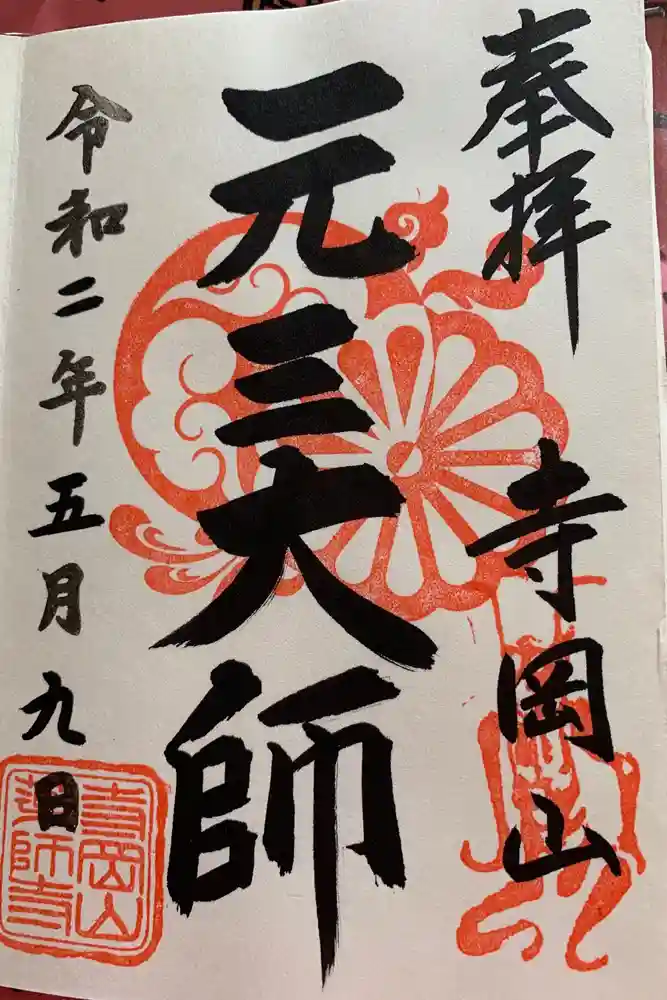 奉拝
寺岡山
元三大師
令和二年五月九日
寺岡山
師寺